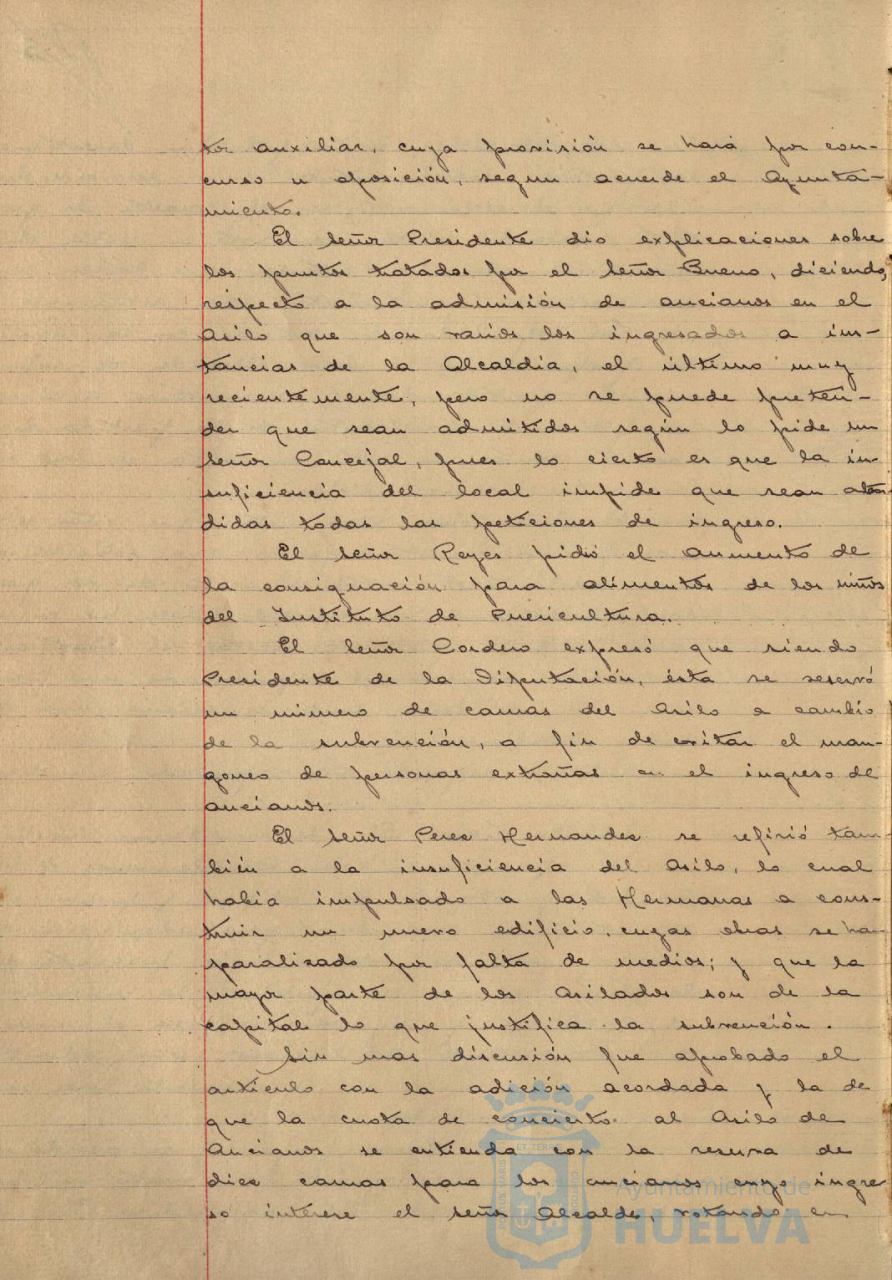 tor auxiliar, cuya provisión se hará por con-
curso u oposición, segun acuerde el Ayunta-
miento.
El Señor Presidente dio explicaciones sobre
los puntos tratados por el Señor Bueno, diciendo,
respecto a la admisión de ancianos en el
Asilo que son varios los ingresados a ins-
tancias de la Alcaldia, el último muy
recientemente, pero no se puede preten-
der que sean admitidos según lo pide un
Señor Concejal, pues lo cierto es que la in-
suficiencia del local impide que sean aten-
didas todas las peticiones de ingreso.
El Señor Reyes pidió el aumento de
la consignación para alimentos de los niños
del Instituto de Puericultura.
El Señor Cordero expresó que siendo
Presidente de la Diputación, ésta se reservó
un número de camas del Asilo a cambio
de la subvención, a fin de evitar el man-
goneo de personas extrañas en el ingreso de
ancianos.
El Señor Perez Hernandez se refirió tam-
bién a la insuficiencia del Asilo, lo cual
habia impulsado a las Hermanas a cons-
truir un nuevo edificio, cuyas obras se han
paralizado por falta de medios; y que la
mayor parte de los Asilados son de la
capital lo que justifica la subvención.
Sin mas discusión fue aprobado el
articulo con la adición acordada y la de
que la cuota de concierto al Asilo de
Ancianos se entienda con la reserva de
diez camas para los ancianos cuyo ingre
so interese el Señor Alcalde, votando en
Ayuntamiento de
HUELVA